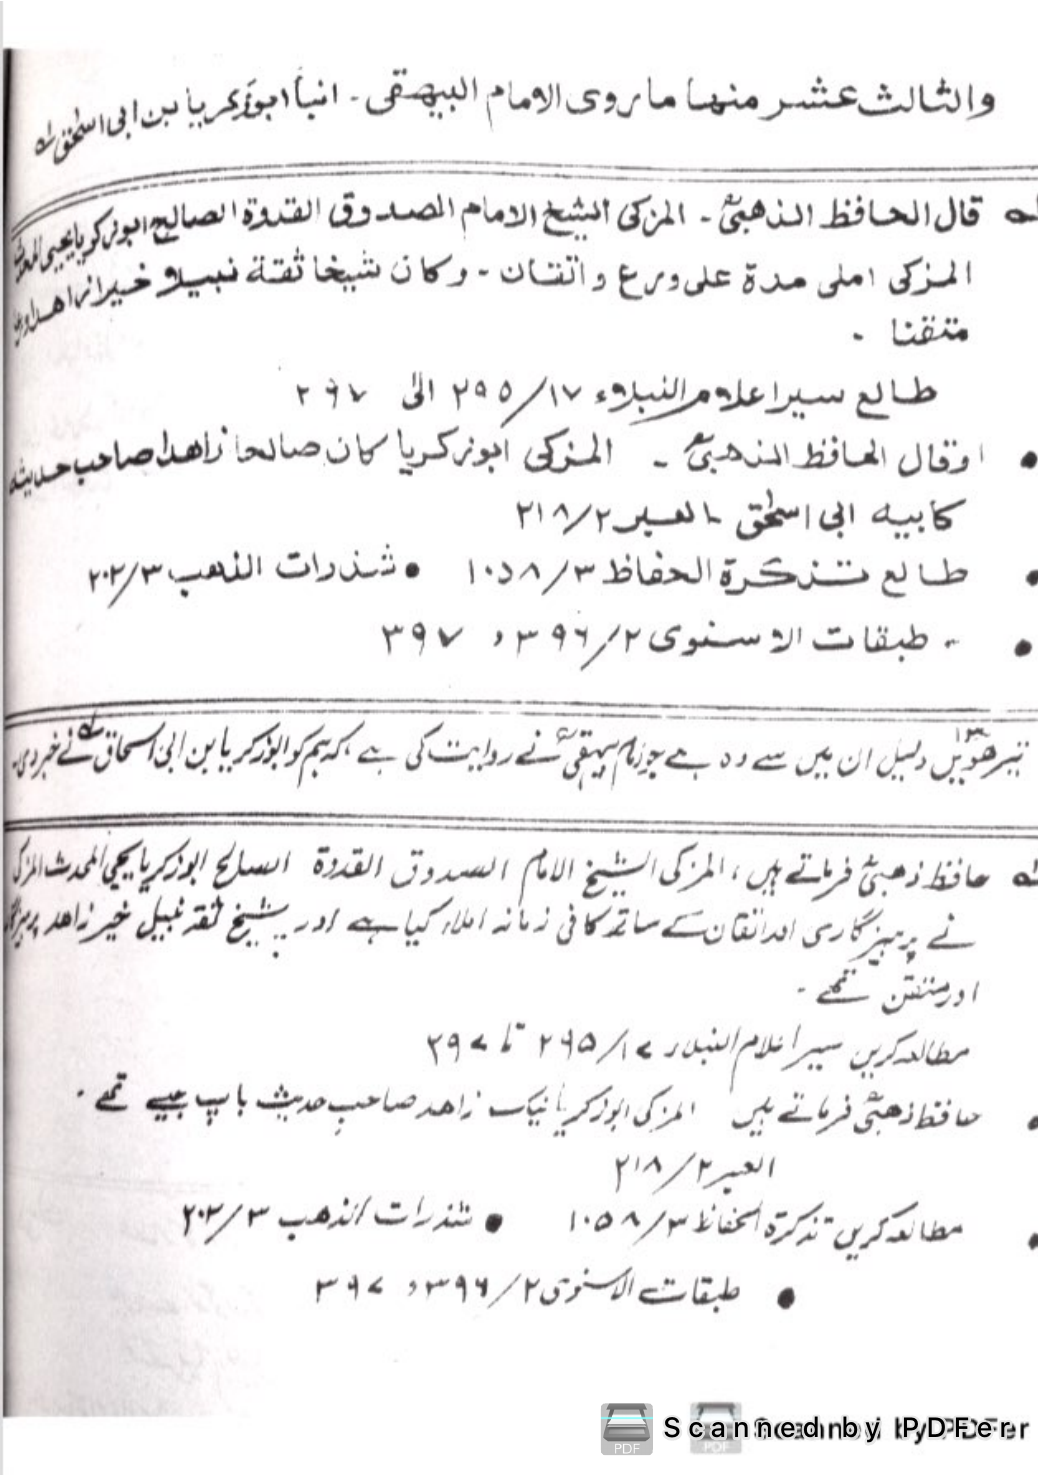 والثالث عشر منها ما روى الامام البيهقى - انبأ ابو زكريا بن ابى اسحٰق له
له قال الحافظ الذهبىؒ - المزكى الشيخ الامام الصدوق القدوة الصالح ابو زكريا يحيى
المزكى املى مدة على ورع واتقان - وكان شيخا ثقة نبيلا خيرا زاهدا
متقنا -
طالع سير اعلام النبلاء ١٧/٢٩٥ الى ٢٩٧
• او قال الحافظ الذهبىؒ - المزكى ابو زكريا كان صالحا زاهدا صاحب حديث
كابيه ابى اسحٰق - العبر ٢/٢١٨
• طالع تذكرة الحفاظ ٣/١٠٥٨ • شذرات الذهب ٣/٢٠٢
• - طبقات الاسنوى ٢/٣٩٦، ٣٩٧
تیرھویں ۱۳ دلیل ان میں سے وہ ہے جو امام بیہقیؒ نے روایت کی ہے کہ ہم کو ابوزکریا بن ابی اسحاق له نے خبر دی۔
له حافظ ذھبیؒ فرماتے ہیں، المزکی الشیخ الامام الصدوق القدوة الصالح ابوزکریا یحیی المحدث المزکی
نے پرہیزگاری اور اتقان کے ساتھ کافی زمانہ املاء کیا ہے اور یہ شیخ ثقہ نبیل خیر زاھد
اور متقن تھے۔
مطالعہ کریں سیر اعلام النبلاء ۱۷/۲۹۵ تا ۲۹۷
• حافظ ذھبیؒ فرماتے ہیں المزکی ابوزکریا نیک زاھد صاحب حدیث باپ جیسے تھے۔
العبر ۲/۲۱۸
• مطالعہ کریں تذکرة الحفاظ ۳/۱۰۵۸ • شذرات الذهب ۳/۲۰۲
• طبقات الاسنوی ۲/۳۹۶، ۳۹۷
Scanned by PDFer
Scanned by PDFer